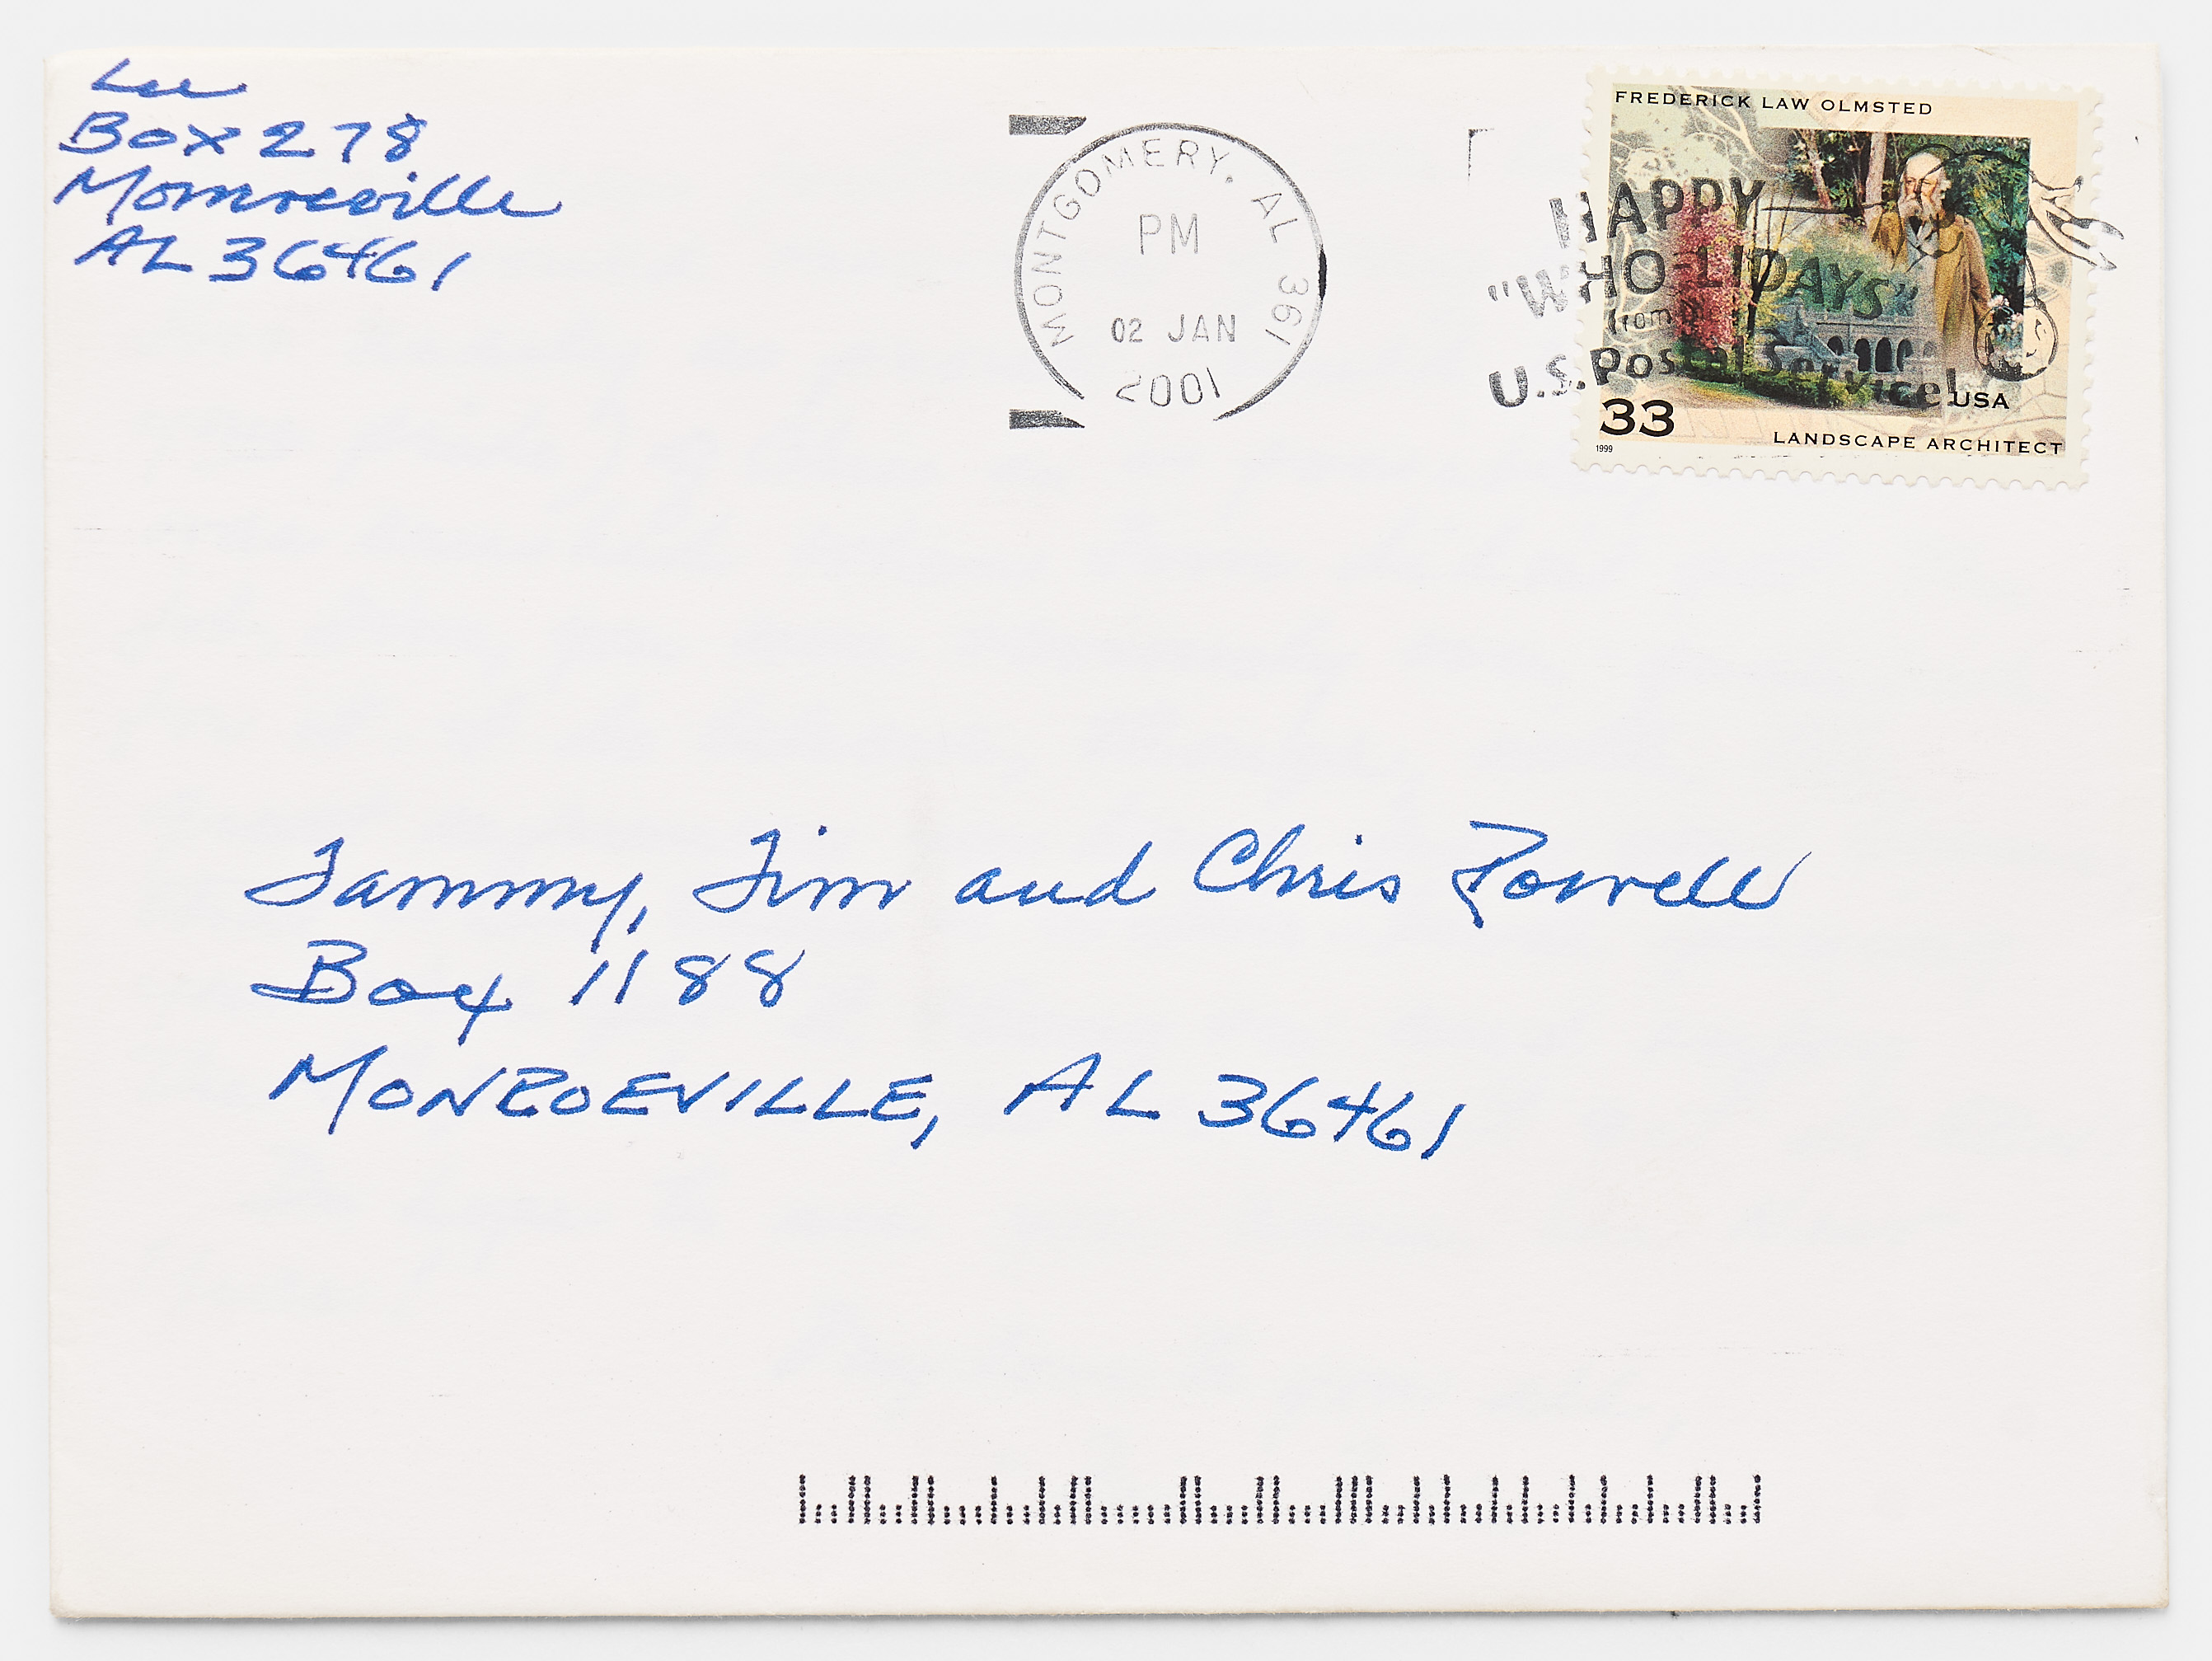 Lee
Box 278
Monroeville
AL 36461
MONTGOMERY, AL 361
PM
02 JAN
2001
HAPPY
"WHO-LIDAYS"
from
U.S. Postal Service!
FREDERICK LAW OLMSTED
33
USA
1999
LANDSCAPE ARCHITECT
Tammy, Tim and Chris Powell
Box 1188
MONROEVILLE, AL 36461